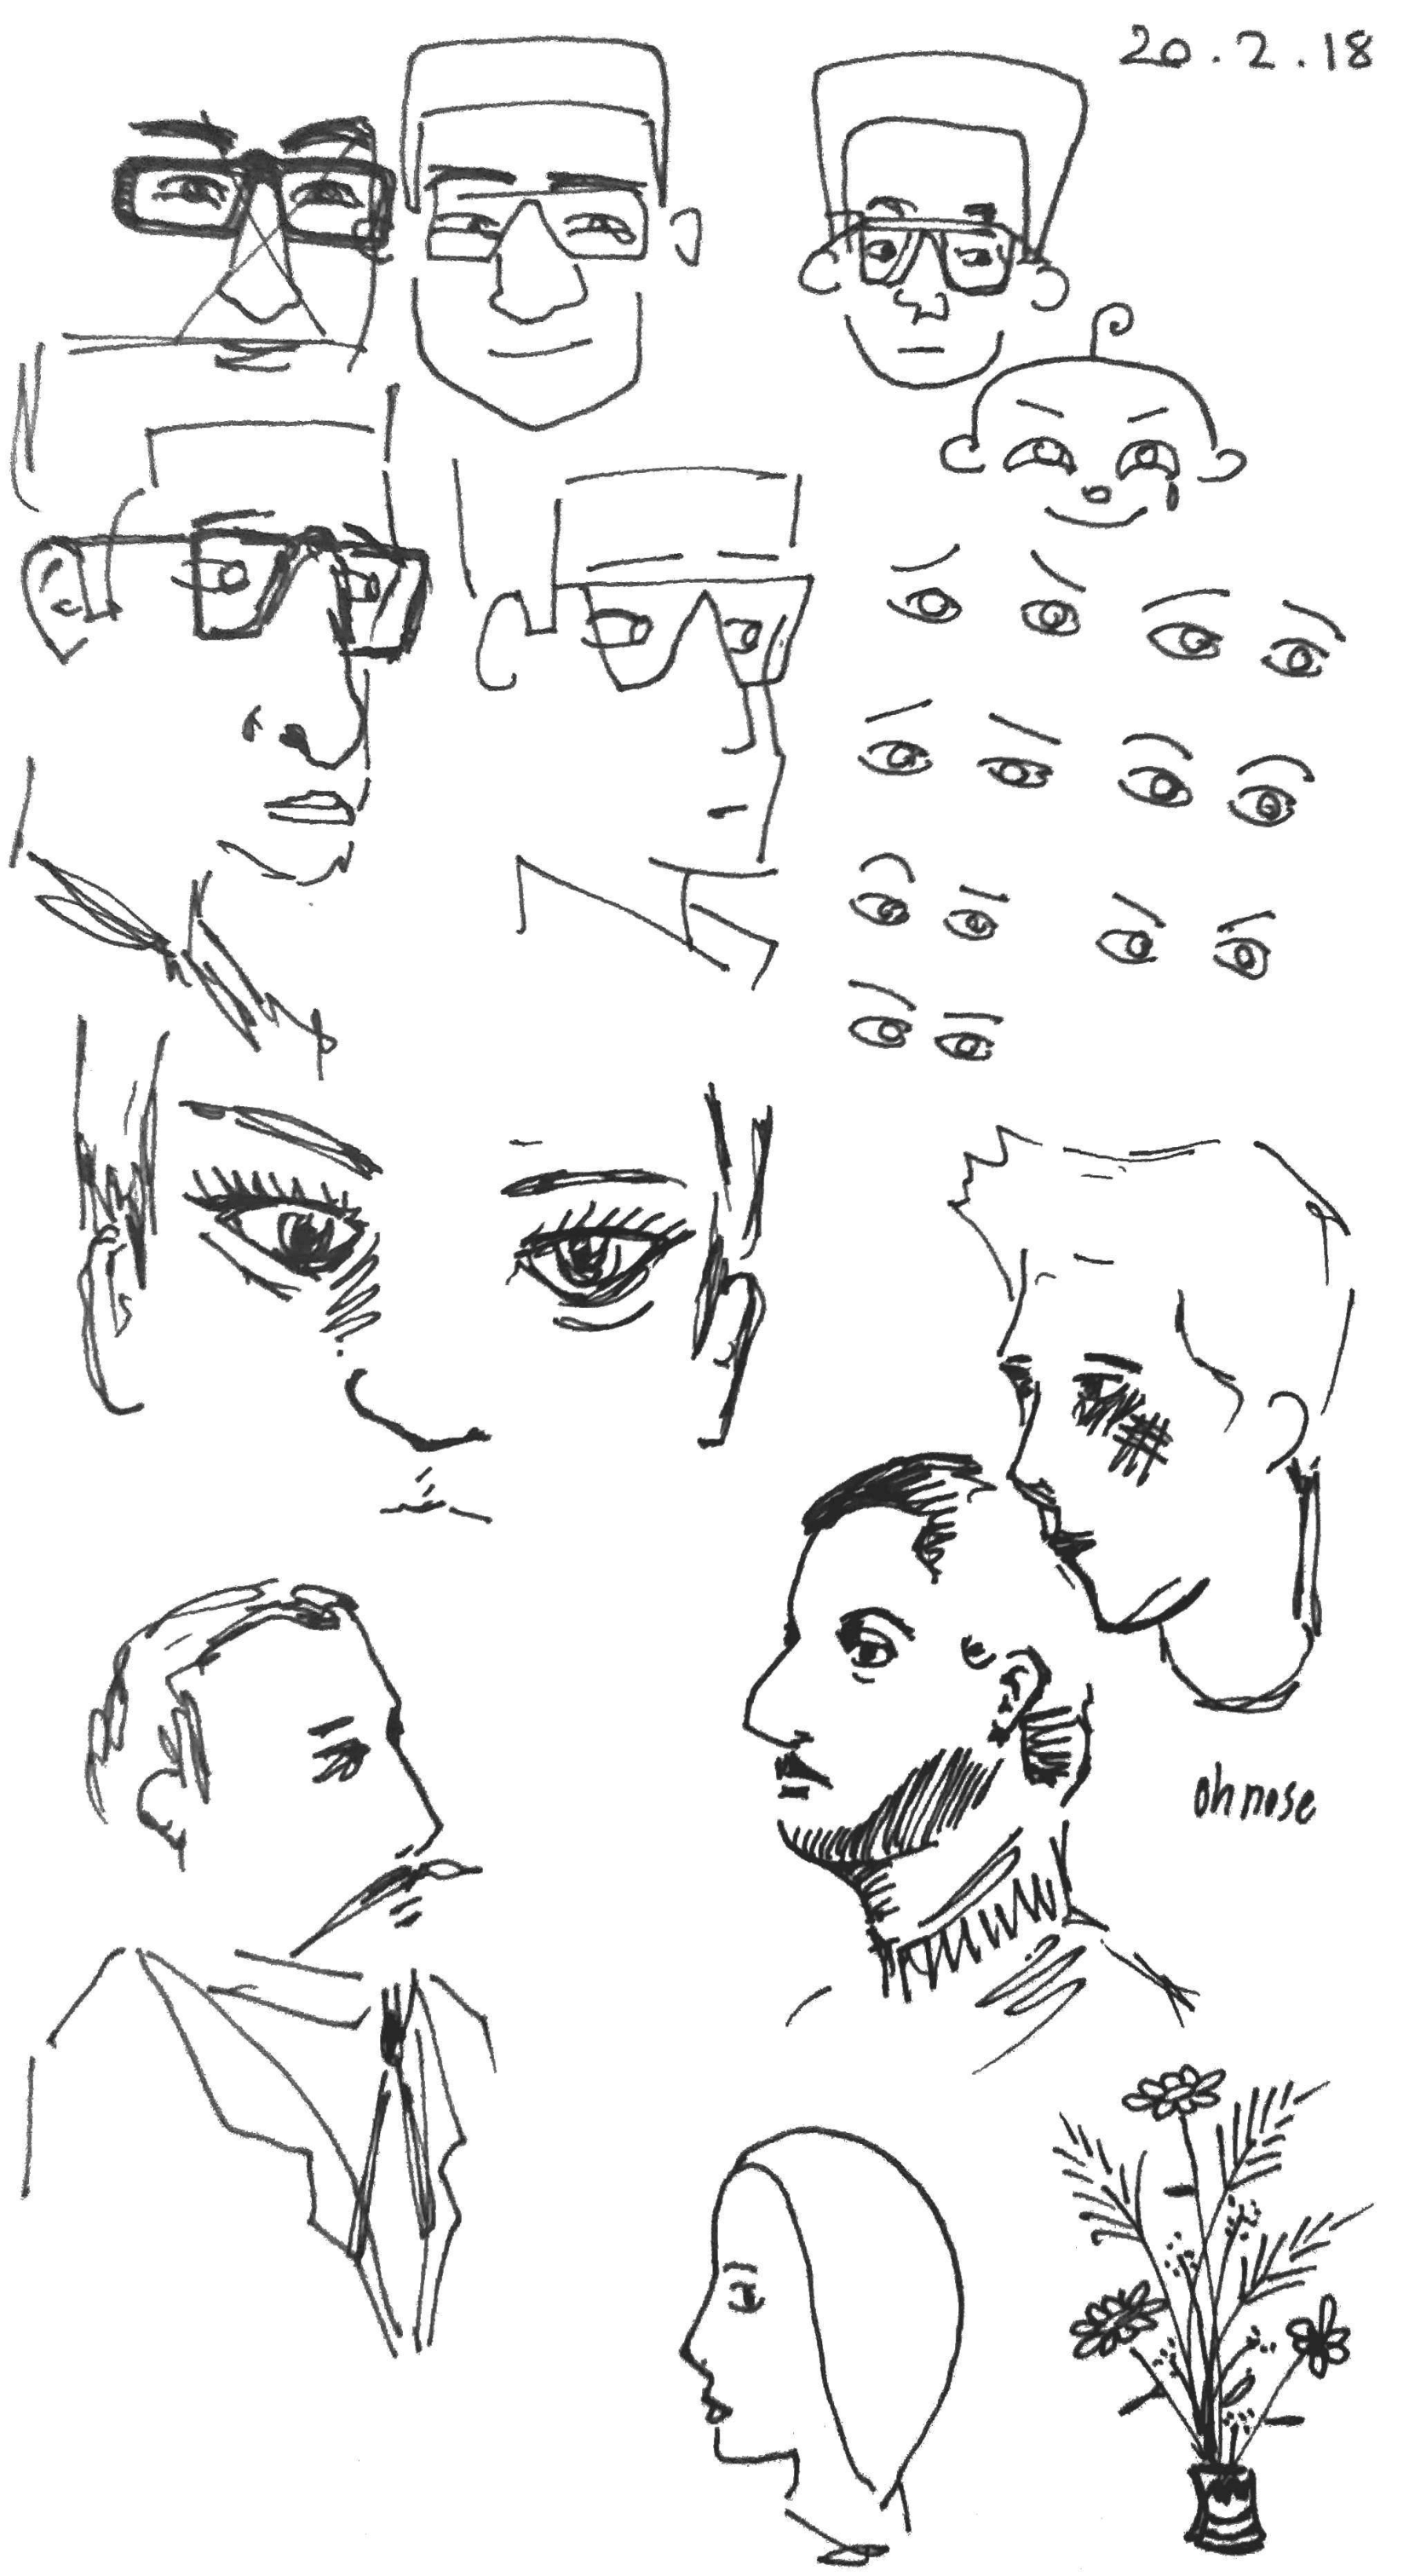 20.2.18
oh nose